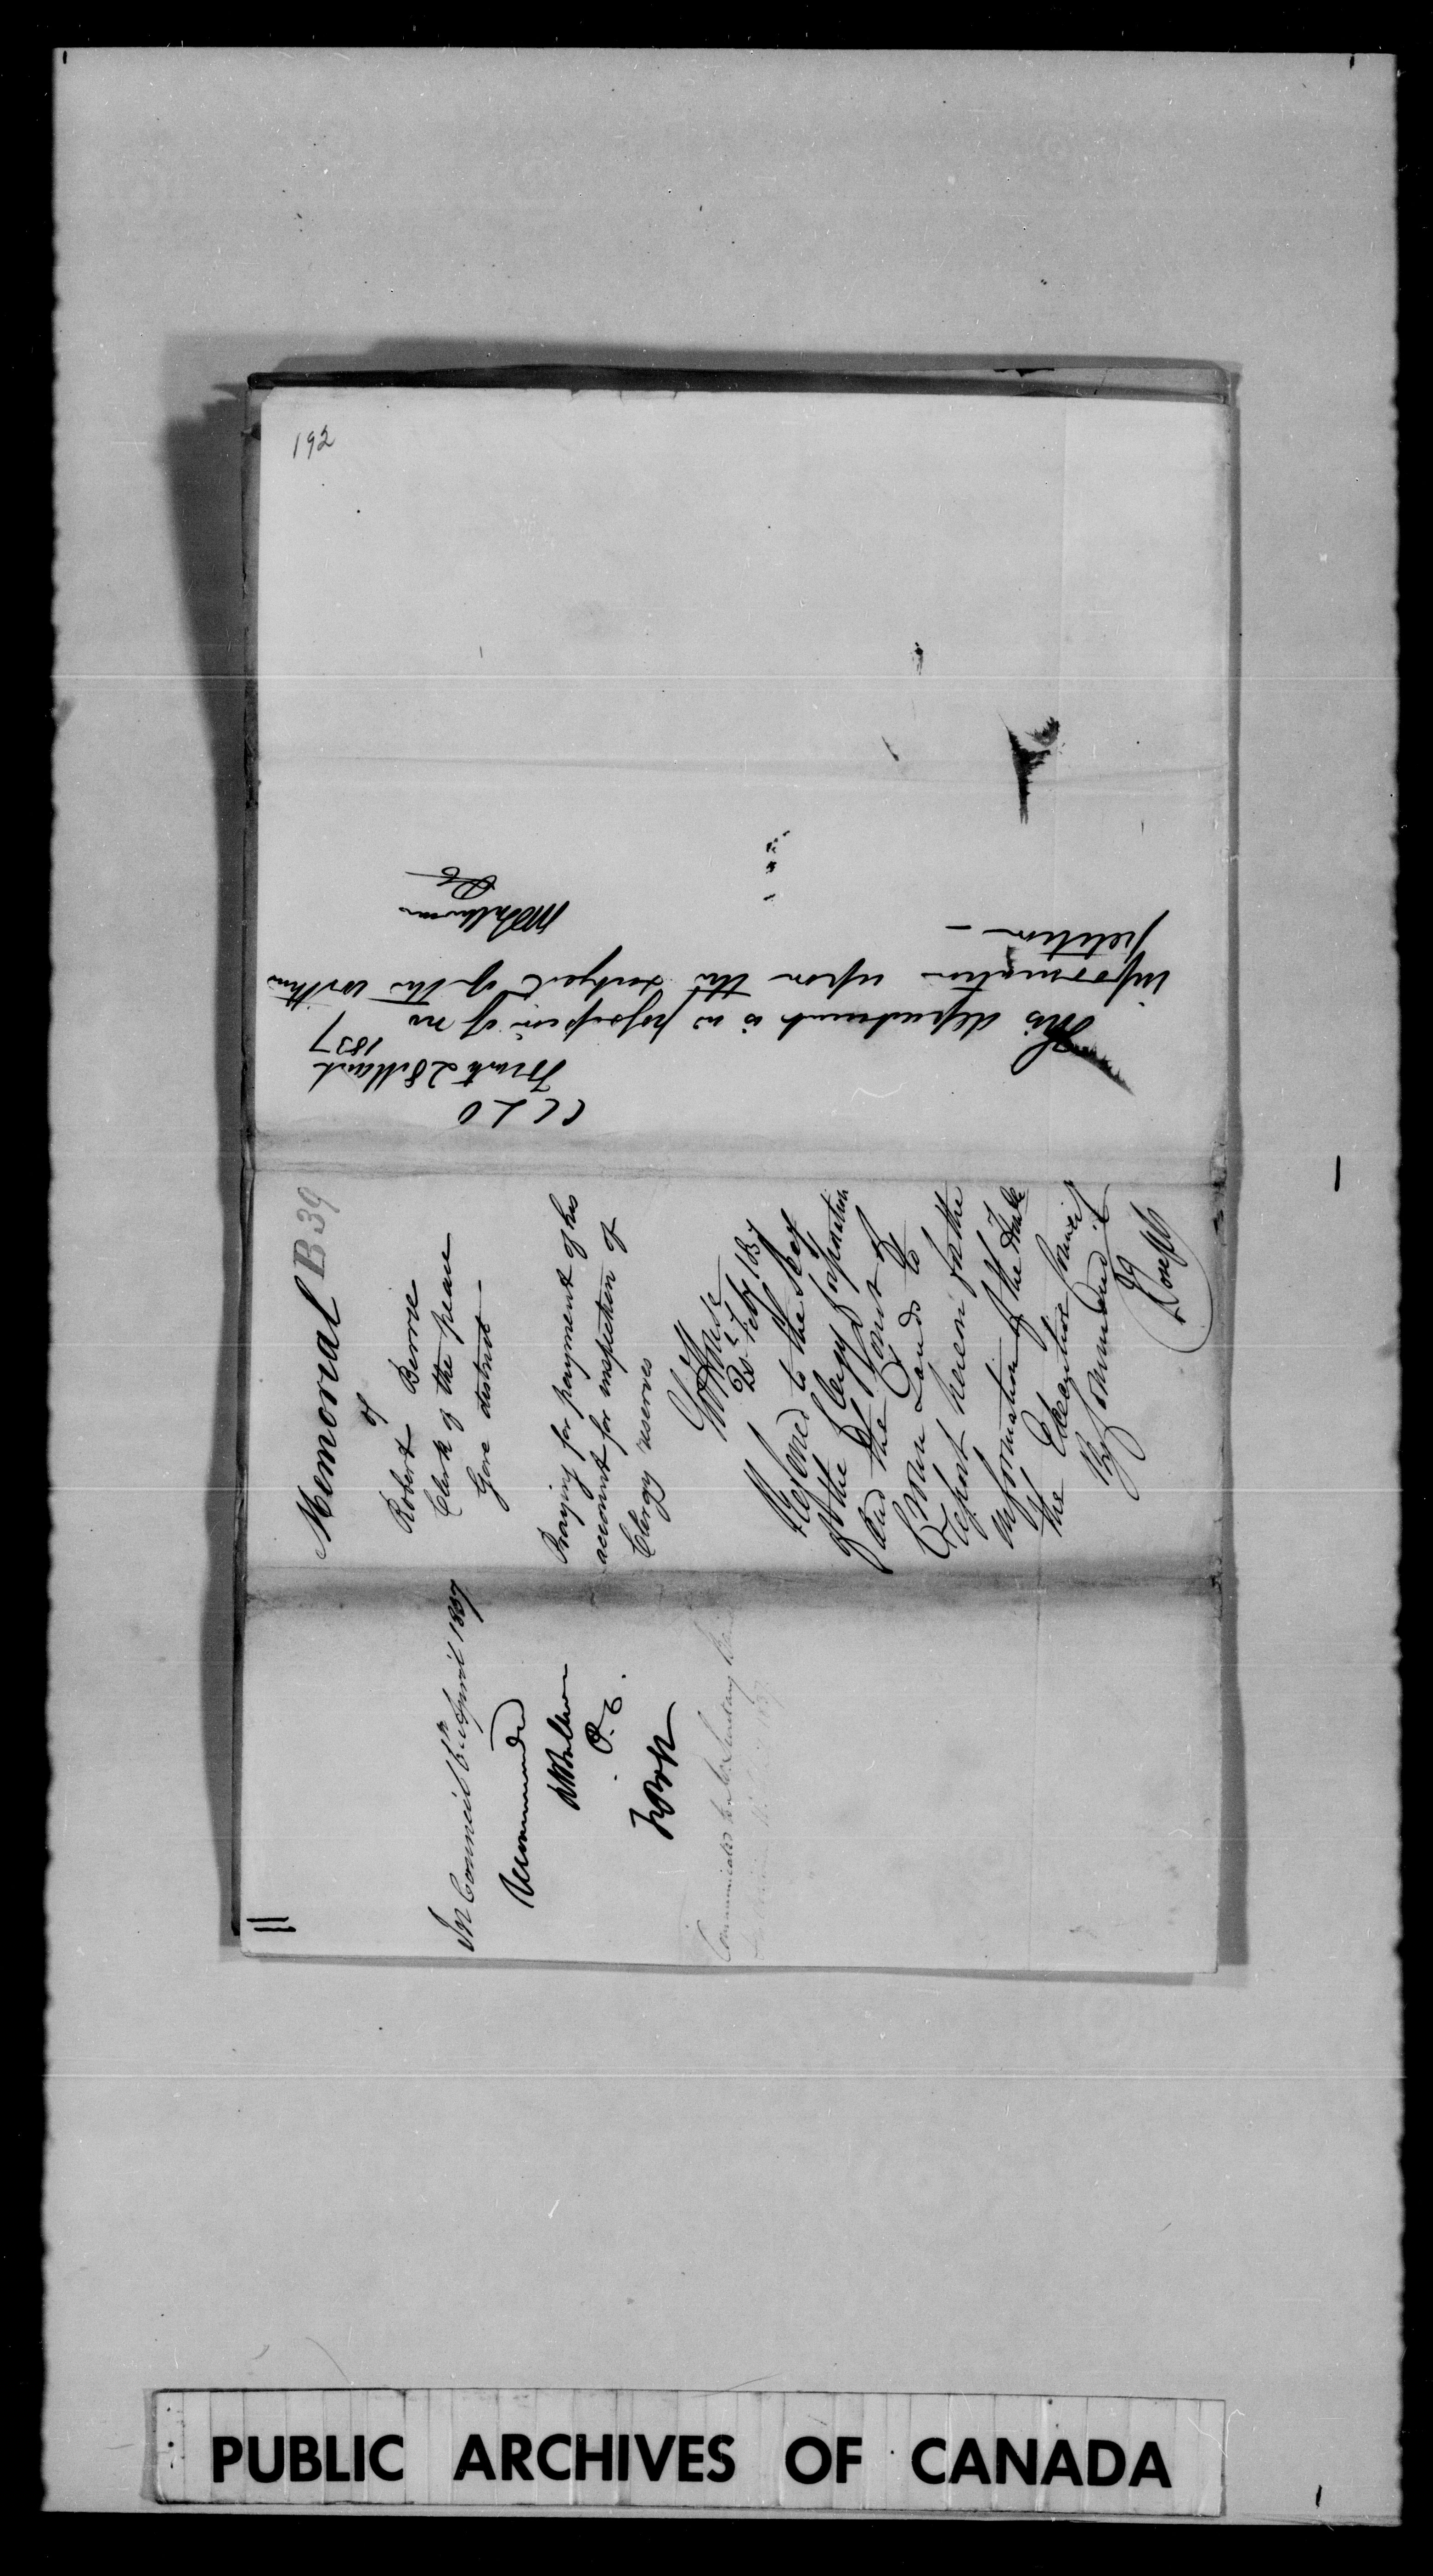 192
C C L O
Toronto 28 March
1837
This department is in possession of no
information upon the subject of the within
petition —
Memorial
B 39
of
Robert Berrie
Clerk of the peace
Gore district —
Praying for payment of his
account for inspection of
Clergy reserves
Govt House
Feby 1837
Referred to the Secy
of the Clergy Corporation
and the Comr of
Crown Lands to
Report hereon for the
information of the Honble
the Executive Council
By Command
J Joseph
In Council 6th April 1837
Recommended
P. C.
FBH
Communicated to Secretary
PUBLIC ARCHIVES OF CANADA